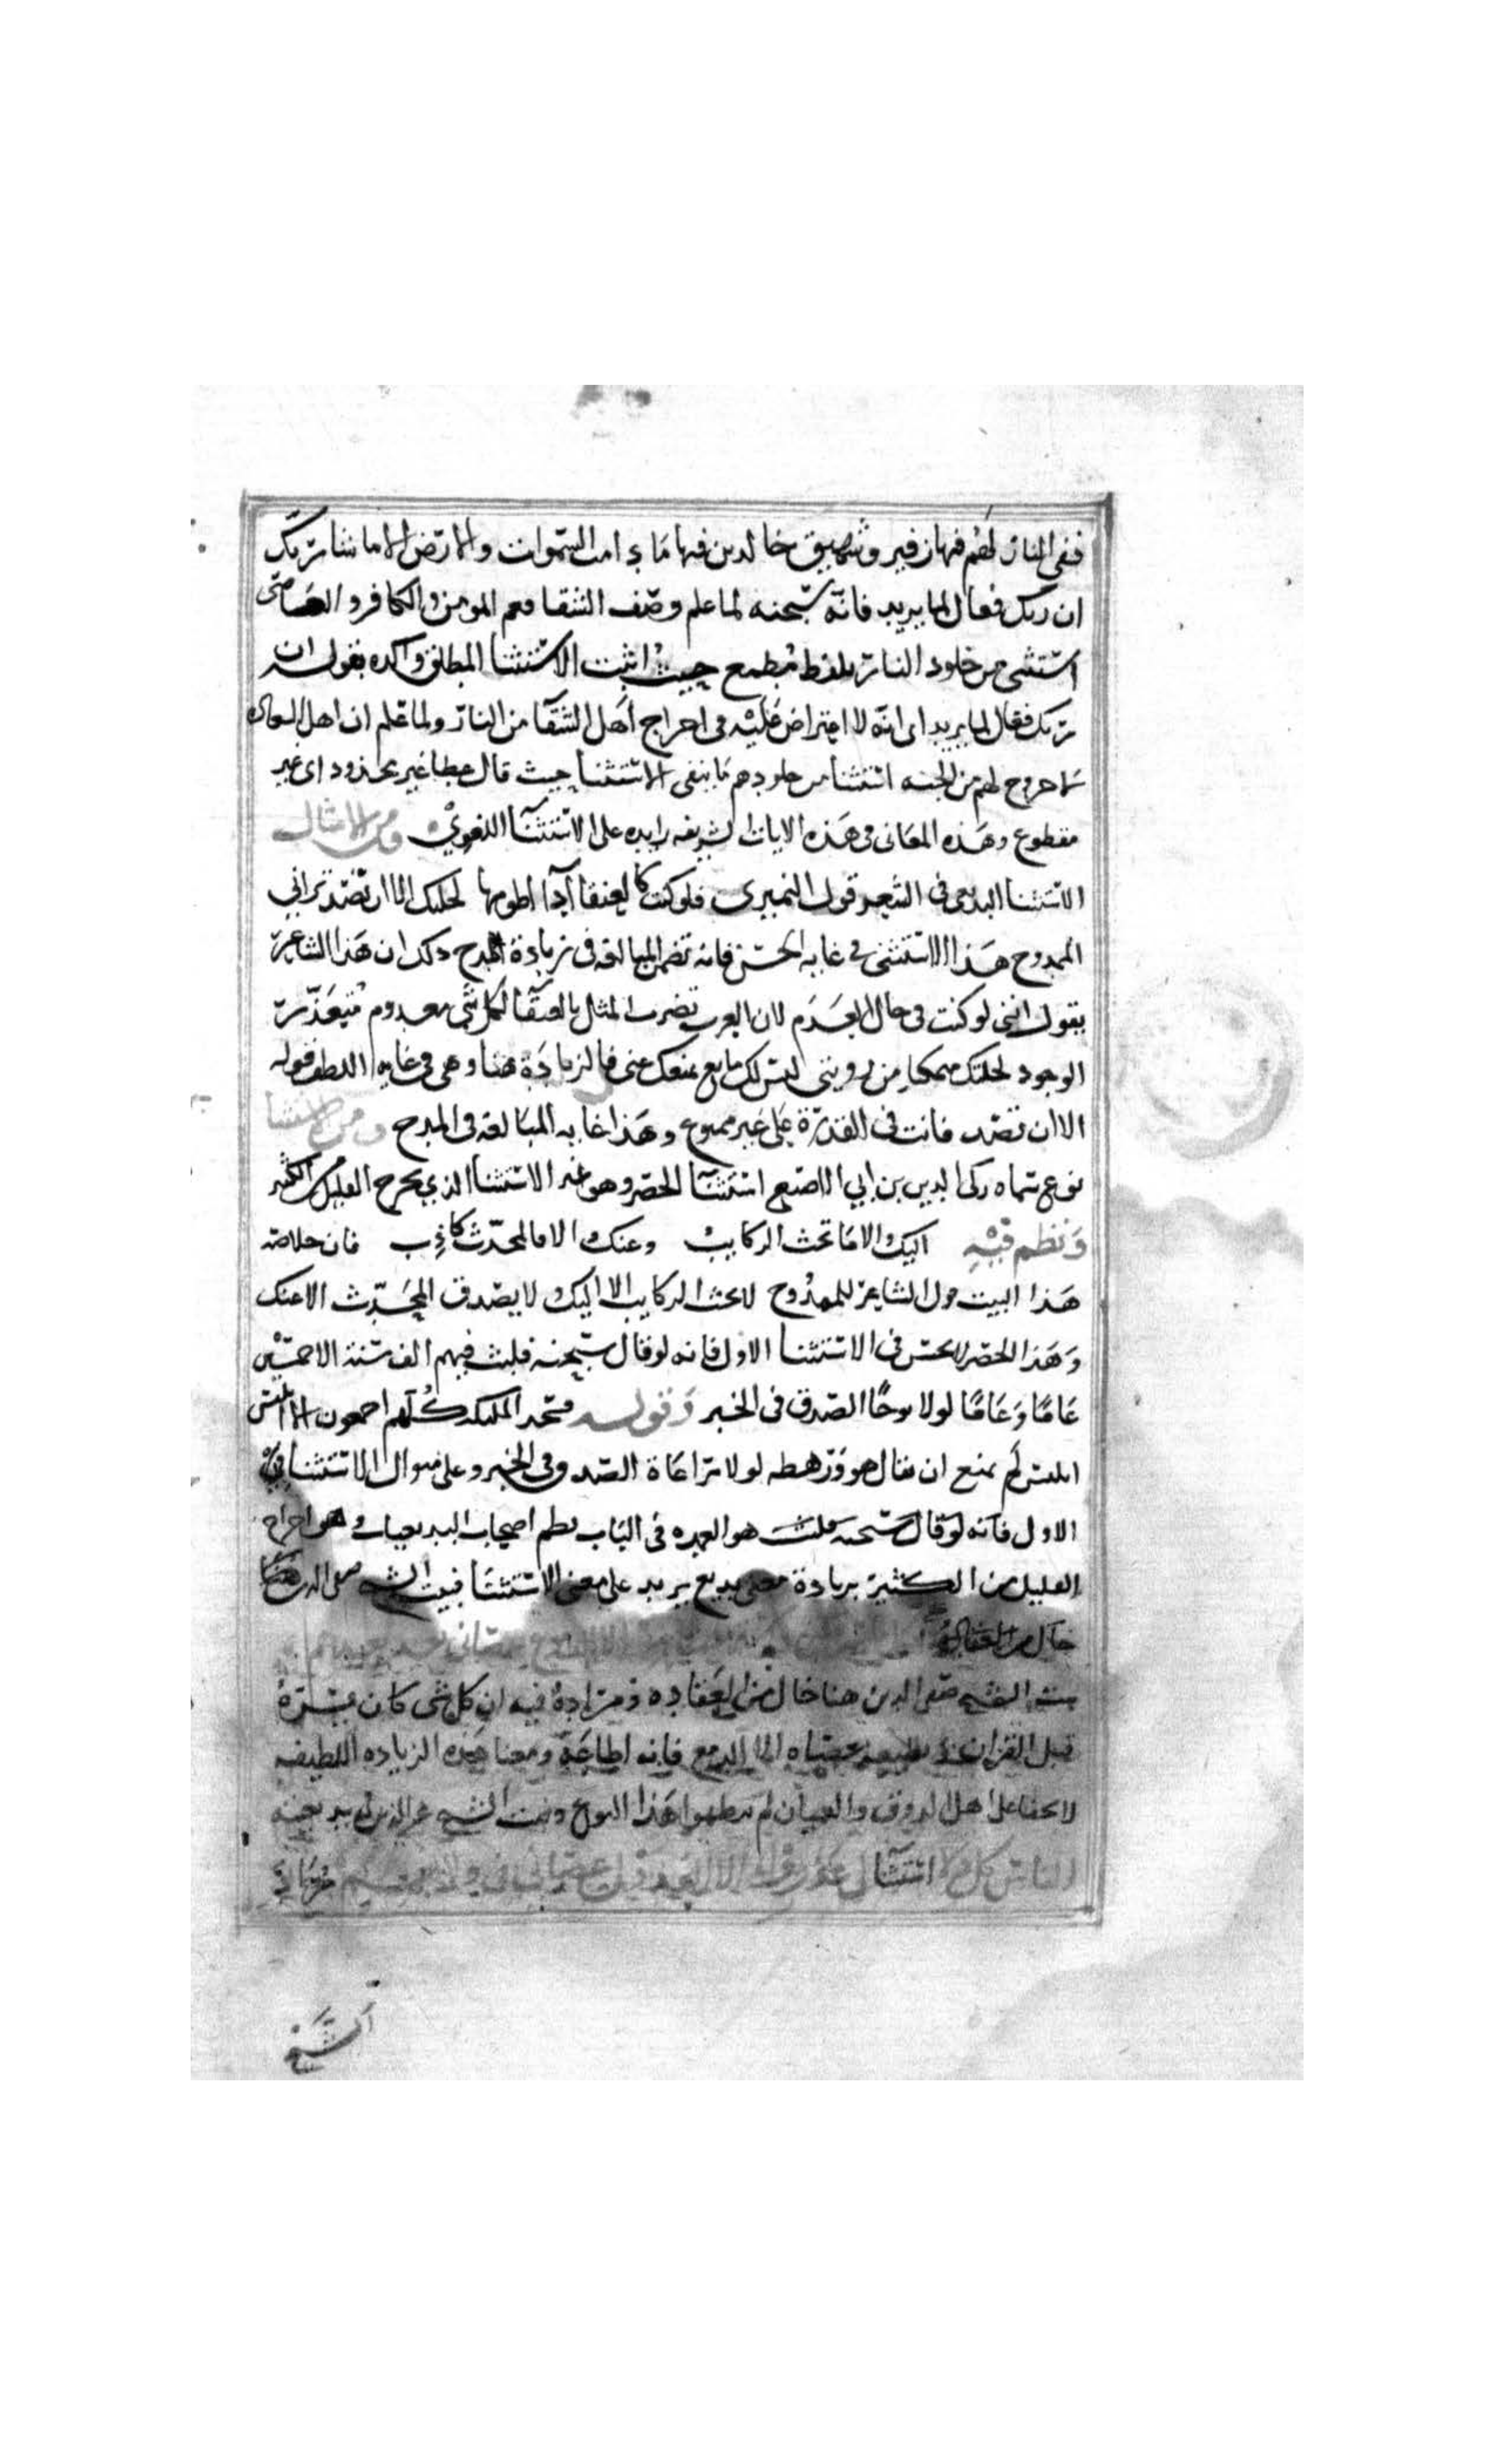 ففى النار لهم فيها زفير وشهيق خالدين فيها ما دامت السموات والارض الا ما شا ربك
ان ربك فعال لما يريد فانه سبحنه لما علم وصف الشقا وعم المومن والكافر والعاصى
استثنى من خلود النار بلفظ مطمع حيث اثبت الاستثنا المطلق واكده بقوله ان
ربك فعال لما يريد اى انه لا اعتراض عليه فى اخراج اهل الشقا من النار ولما علم ان اهل السعاده
لا خروج لهم من الجنه استثنا من خلودهم ما ينفى الاستثنا حيث قال عطا غير مجذوذ اى غير
مقطوع وهذه المعانى فى هذه الايات الشريفه زايده على الاستثنا اللغوى ومن الامثال
الاستثنا البديعى فى الشعر قول النميرى فلو كنت كالعنقا او اطومها لخلتك الا ان تصد ترانى
الممدوح هذا الاستثنى فى غايه الحسن فانه تضمن المبالغه فى زيادة المدح وذلك ان هذا الشاعر
يقول اننى لو كنت فى حال العدم لان العرب تضرب المثل بالعنقا لكل شى معدوم متعذر
الوجود لخلتك متمكنا من رويتى ليس لك مانع يمنعك عنى فالزيادة هنا وهى فى غايه اللطف قوله
الا ان تصد فانت فى القدرة على غير ممنوع وهذا غايه المبالغه فى المدح ومن الاستثنا
نوع سماه زكى الدين بن ابى الاصبع استثنا الحصر وهو غير الاستثنا الذى يخرج القليل من الكثير
ونظم فيه اليك والا ما تحث الركايب وعنك والا فالمحدث كاذب فان خلاصه
هذا البيت قول الشاعر للممدوح لا تحث الركايب الا اليك ولا يصدق المحدث الا عنك
وهذا الحصر لا يحسن فى الاستثنا الاول فانه لو قال سبحنه فلبث فيهم الف سنة الا خمسين
عاما وعاما لولا توخا الصدق فى الخبر وقوله فسجد المليكه كلهم اجمعون الا ابليس
ابليس لم يمنع ان يقال هو ورهطه لولا مراعاة الصدق فى الخبر وعلى منوال الاستثنا
الاول فانه لو قال سبحنه هو العمده فى الباب نظم اصحاب البديعيات وهو اخراج
القليل من الكثير بزيادة معنى بديع يزيد على معنى الاستثنا فبيت الشيخ صفى الدين هنا
خال من العقاده
بيت الشيخ صفى الدين هنا خال من العقاده ومزاده فيه ان كل شى كان يسره
قبل الفراق عصاه الا الدمع فانه اطاعه ومعنا هذه الزياده اللطيفه
لا يخفا على اهل الذوق والعميان لم ينظموا هذا النوع وبيت الشيخ عز الدين فى بديعيته
الناس كل ولا استثنا لى عذروا الا
الشيخ